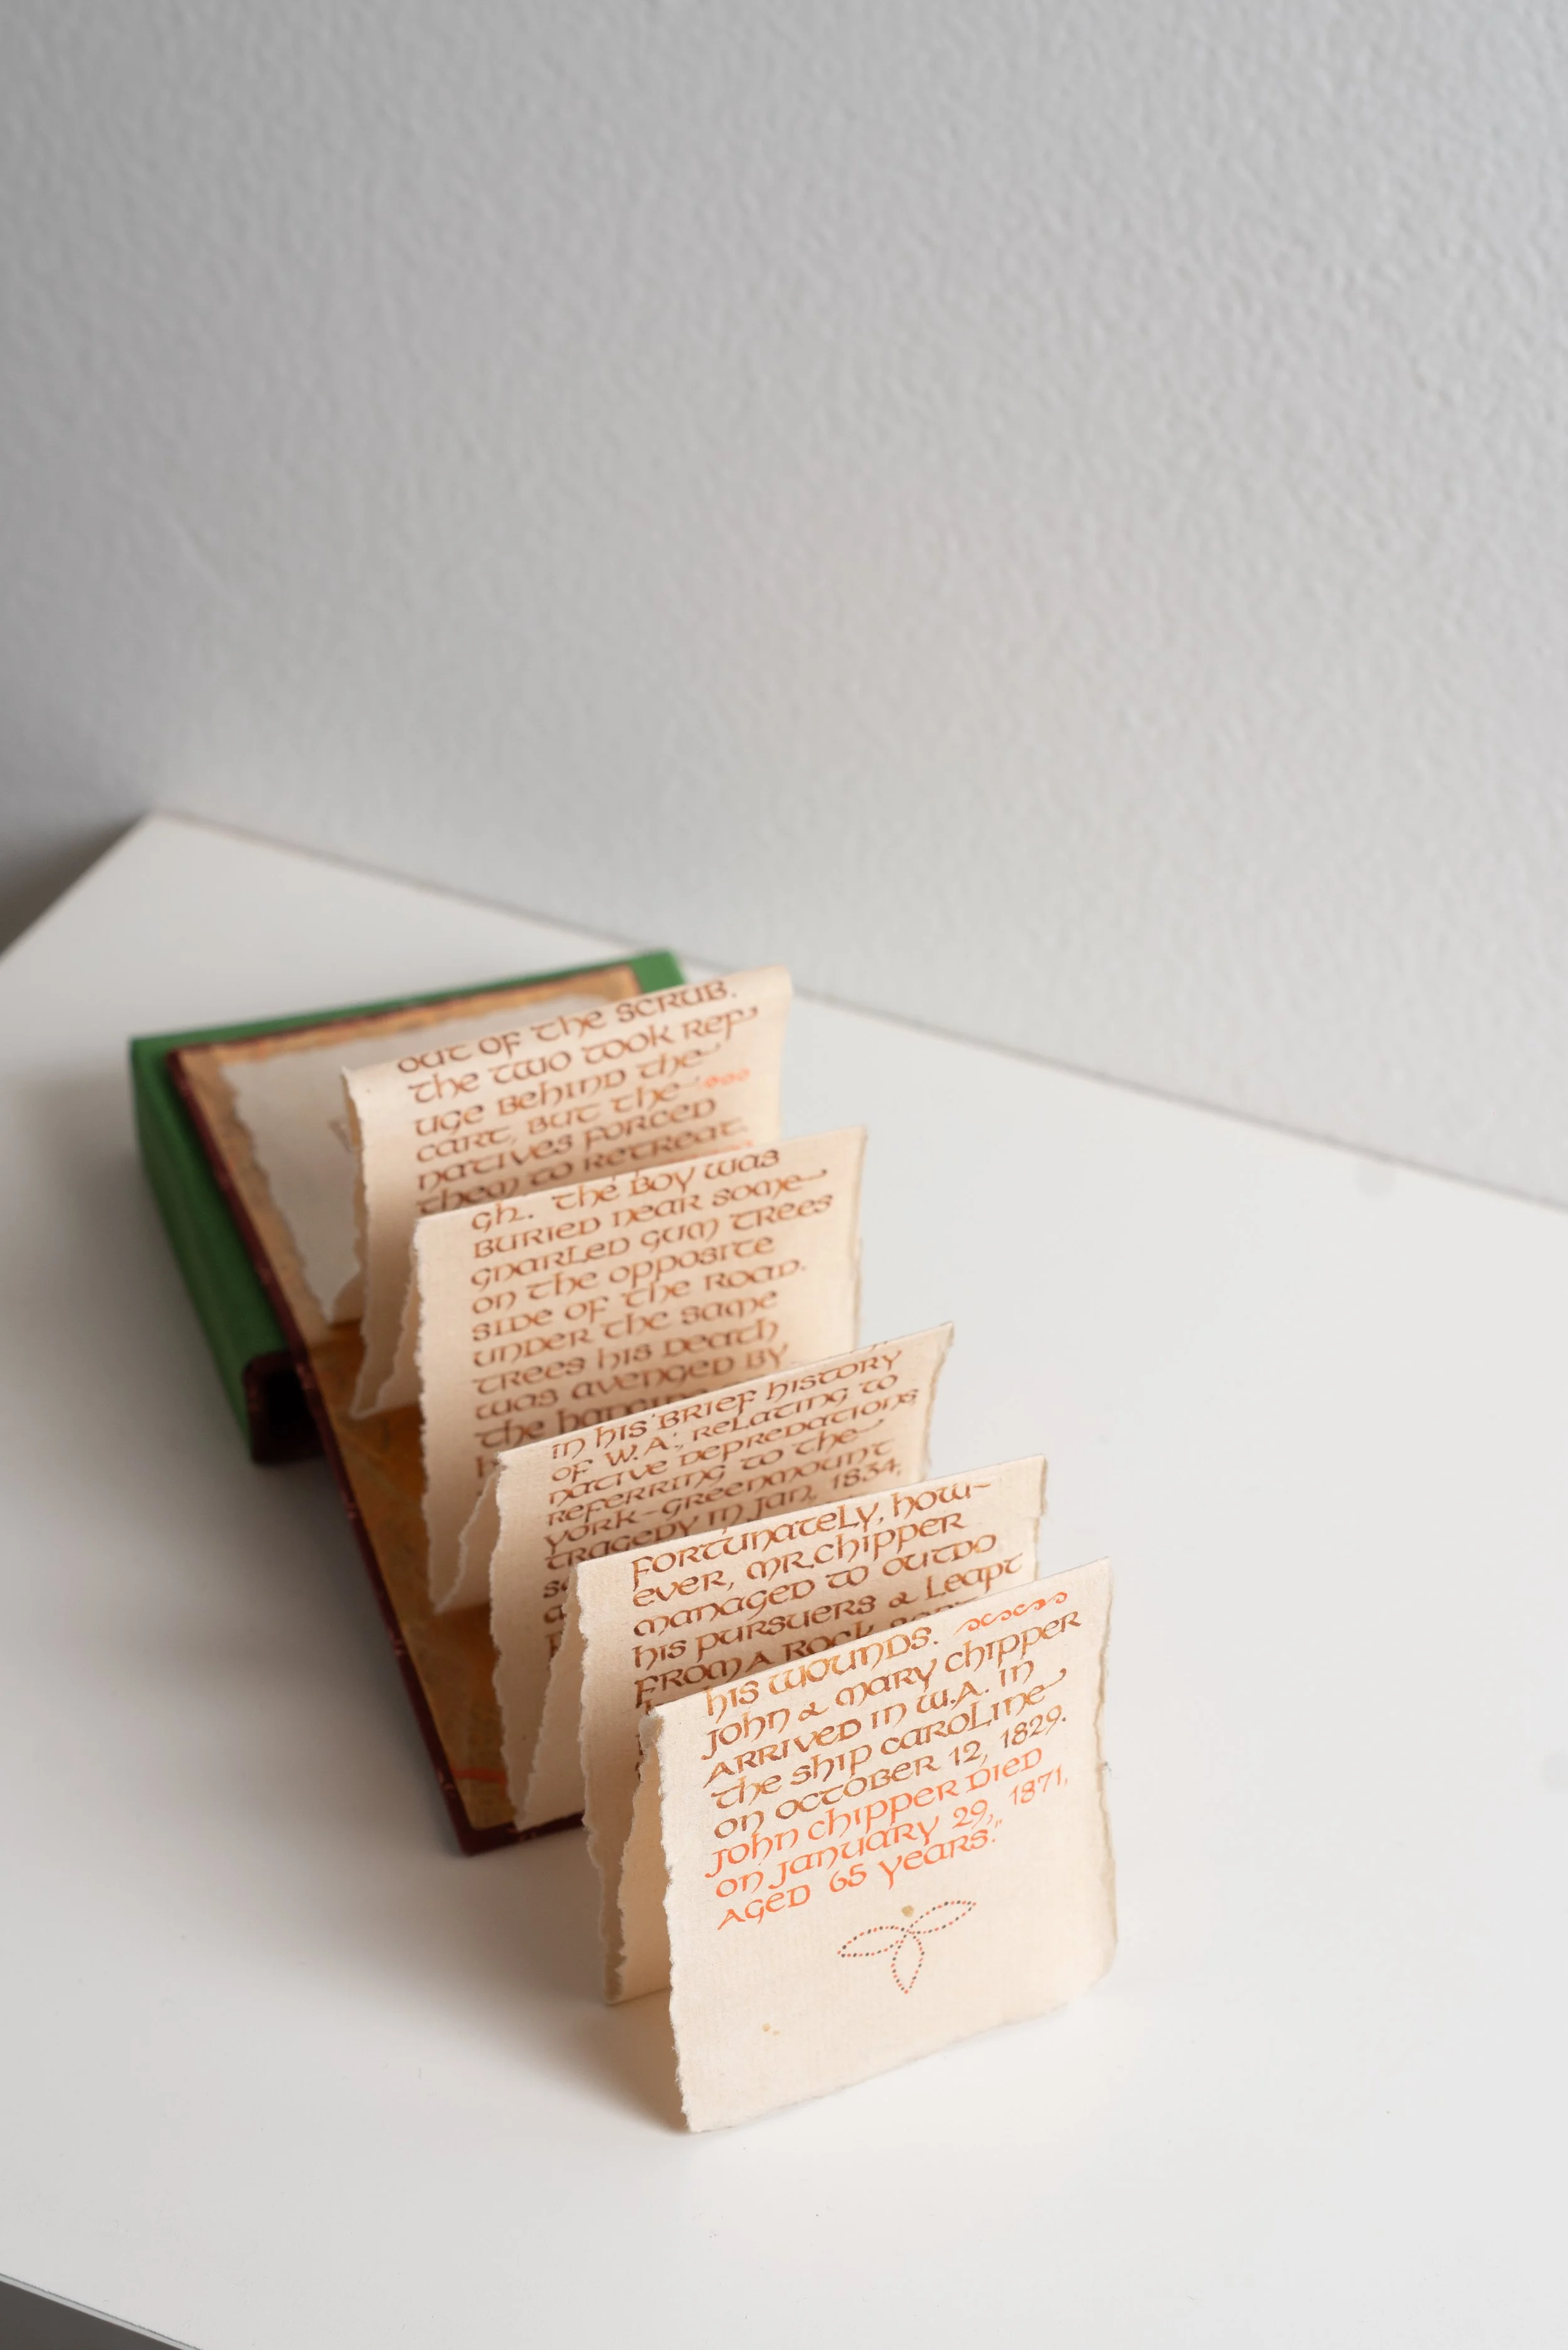 out of the scrub.
the two took ref
uge behind the
cart, but the
natives forced
them to retreat.
gh. the boy was
buried near some
gnarled gum trees
on the opposite
side of the road.
under the same
trees his death
was avenged by
the hanging
in his 'brief history
of W.A.', relating to
native depredations
referring to the
york-greenmount
tragedy in jan, 1834,
fortunately, how-
ever, mr. chipper
managed to outdo
his pursuers & leapt
from a rock
his wounds.
john & mary chipper
arrived in w.a. in
the ship caroline
on october 12, 1829.
john chipper died
on january 29, 1871,
aged 65 years."